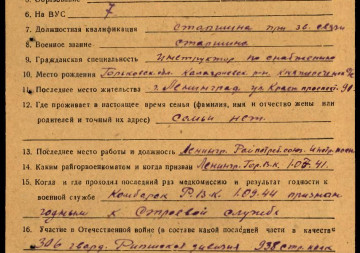 6. На ВУС 7
7. Должностная квалификация старшина при зв. связи
8. Военное звание старшина
9. Гражданская специальность Инструктор по снабжению
10. Место рождения Горьковск. обл.
11. Последнее место жительства г. Ленинград ул. Красн. 90.
12. Где проживает в настоящее время семья (фамилия, имя и отчество жены или
родителей и точный их адрес) семьи нет.
13. Последнее место работы и должность Ленингр. Райпотребсоюз
14. Каким райгорвоенкоматом и когда призван Ленингр. Гор. В.к. 41.
15. Когда и где проходил последний раз медкомиссию и результат годности к
военной службе Комбарск Р.В.К. 1.09.44 признан
годным к строевой службе
16. Участие в Отечественной войне (в составе какой последней части в качестве
306 гвард. дивизия 938 стр. полк